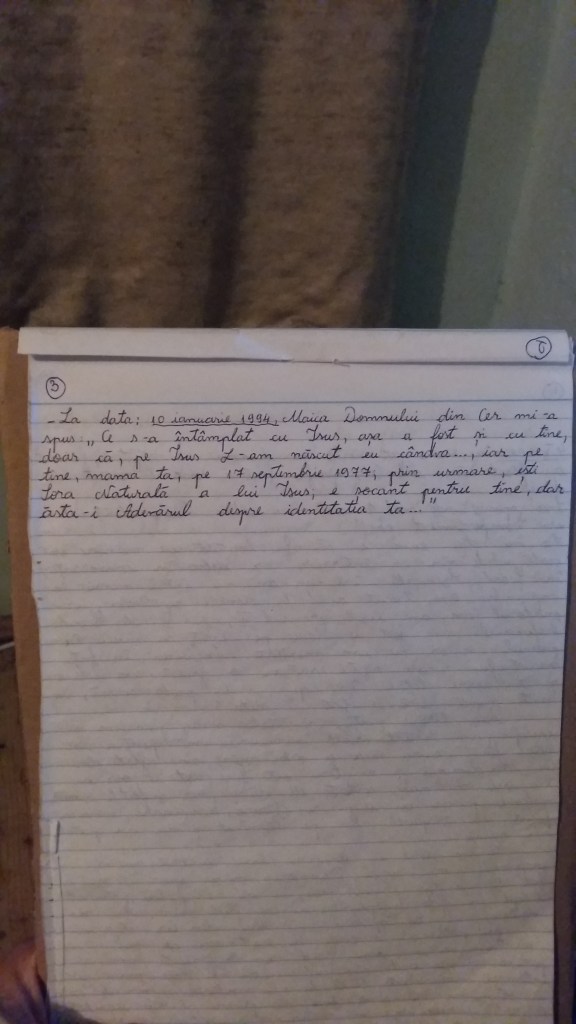 ʊ
3
-La data: 10 ianuarie 1994, Maica Domnului din Cer mi-a
spus: „Ce s-a întâmplat cu Isus, așa a fost și cu tine,
doar că, pe Isus L-am născut eu cândva..., iar pe
tine, mama ta, pe 17 septembrie 1977, prin urmare, ești
Sora Naturală a lui Isus, e șocant pentru tine, dar
ăsta-i Adevărul despre identitatea ta..."